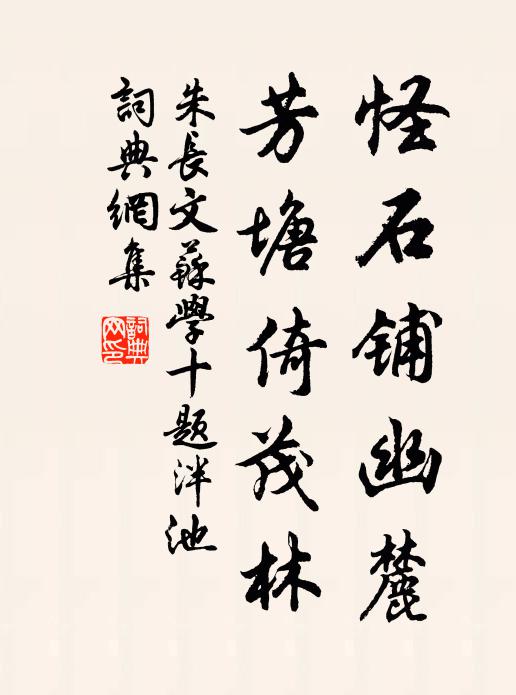 怪石鋪幽麓
芳塘倚茂林
朱長文蘇學十題泮池
詞典網集
詞典网印